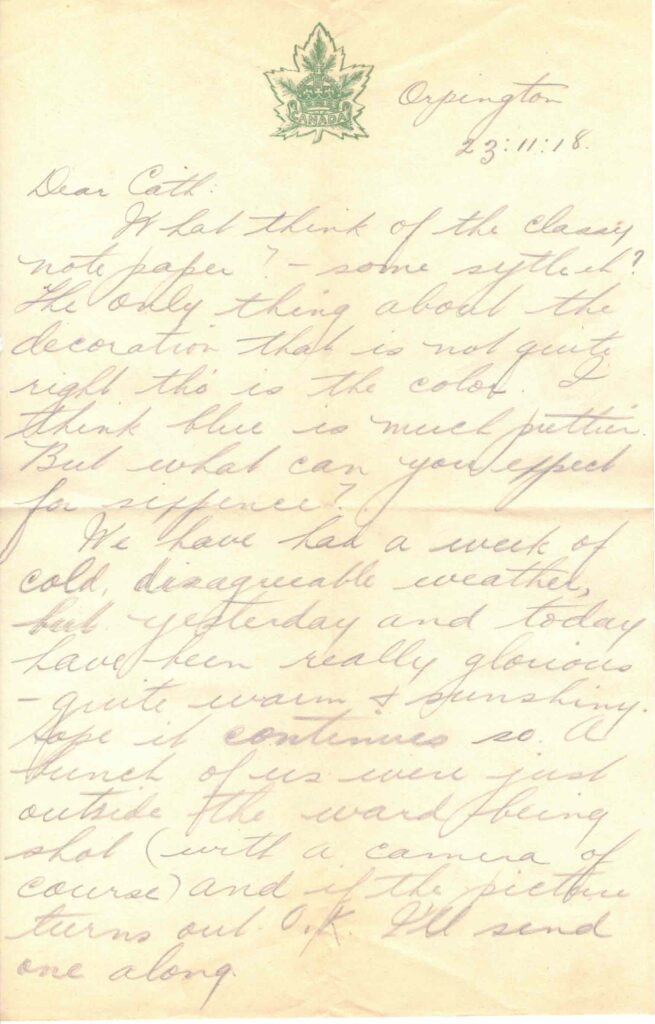 CANADA
Orpington
23:11:18.
Dear Cath:
What think of the classy
note paper? - some sytle eh?
The only thing about the
decoration that is not quite
right tho' is the color. I
think blue is much prettier.
But what can you expect
for sixpence?
We have had a week of
cold, disagreeable weather,
but yesterday and today
have been really glorious
- quite warm & sunshiny.
Hope it continues so. A
bunch of us were just
outside the ward being
shot (with a camera of
course) and if the picture
turns out O.K. I'll send
one along.